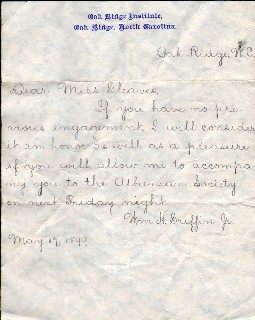 Oak Ridge Institute,
Oak Ridge, North Carolina.
Oak Ridge, N.C.
Dear Miss
If you have no pre
vious engagement, I will consider
it an honor as well as a pleasure
if you will allow me to accompa
ny you to the Athenean Society
on next Friday night.
Wm. H. Griffin Jr.
May 19,